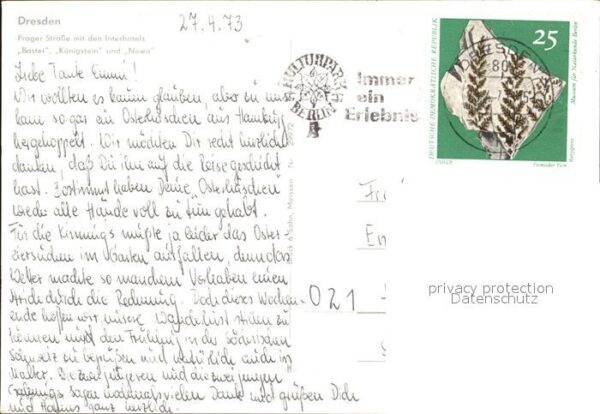 Dresden
Prager Straße mit den Interhotels
„Bastei", „Königstein" und „Newa"
27.4.73
Liebe Tante Emmi!
Wir wollten es kaum glauben, aber zu uns
kam sogar ein Osterhäschen aus Hamburg
hergehoppelt. Wir möchten Dir recht herzlich
danken, daß Du ihn auf die Reise geschickt
hast. Bestimmt haben Deine „Osterhäschen
wieder alle Hände voll zu tun gehabt.
Für die mußte ja leider das Oster-
eiersuchen im Garten ausfallen, denn das
Wetter machte so manchem Vorhaben einen
Strich durch die Rechnung. Doch dieses Wochen-
ende hoffen wir, unsere Wanderlust stillen zu
können und den Frühling in der Sächsischen
Schweiz zu begrüßen und natürlich auch im
Die zwei jüngeren und die zwei jungen
sagen nochmals vielen Dank und grüßen Dich
und Hannes ganz herzlich.
KULTURPARK
BERLIN
Immer
ein
Erlebnis
DRESDEN
80
25
DEUTSCHE DEMOKRATISCHE REPUBLIK
Museum für Naturkunde Berlin
021
privacy protection
Datenschutz